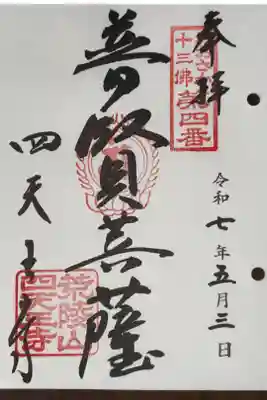 奉拝
おおさか
十三佛
第四番
令和七年五月三日
普賢菩薩
四天王寺
荒陵山
四天王寺